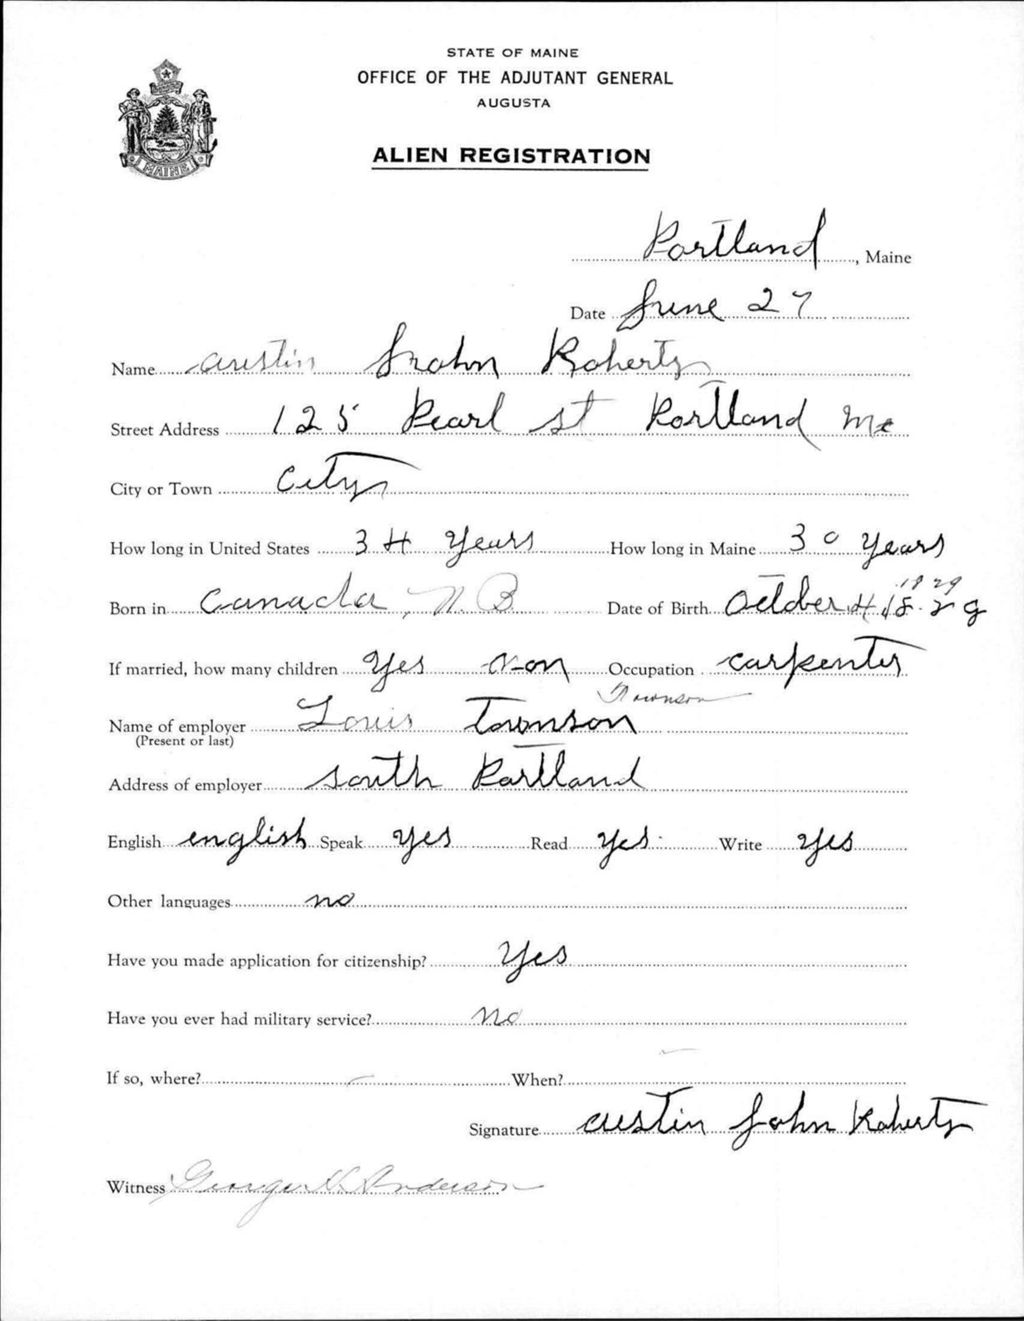 STATE OF MAINE
OFFICE OF THE ADJUTANT GENERAL
AUGUSTA
MAINE
ALIEN REGISTRATION
Portland, Maine
Date June 27
Name austin John Roberts
Street Address 125 Pearl st Portland Me
City or Town City
How long in United States 34 Years How long in Maine 30 years
1829
Born in Canada, N.B. Date of Birth October 4 1829
If married, how many children Yes non Occupation carpenter
Townson
Name of employer Louis Townson
(Present or last)
Address of employer south Portland
English english Speak yes Read yes Write yes
Other languages no
Have you made application for citizenship? Yes
Have you ever had military service? No
If so, where? When?
Signature austin John Roberts
Witness George H. Anderson